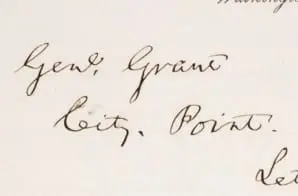 Genl. Grant
City. Point.
Let